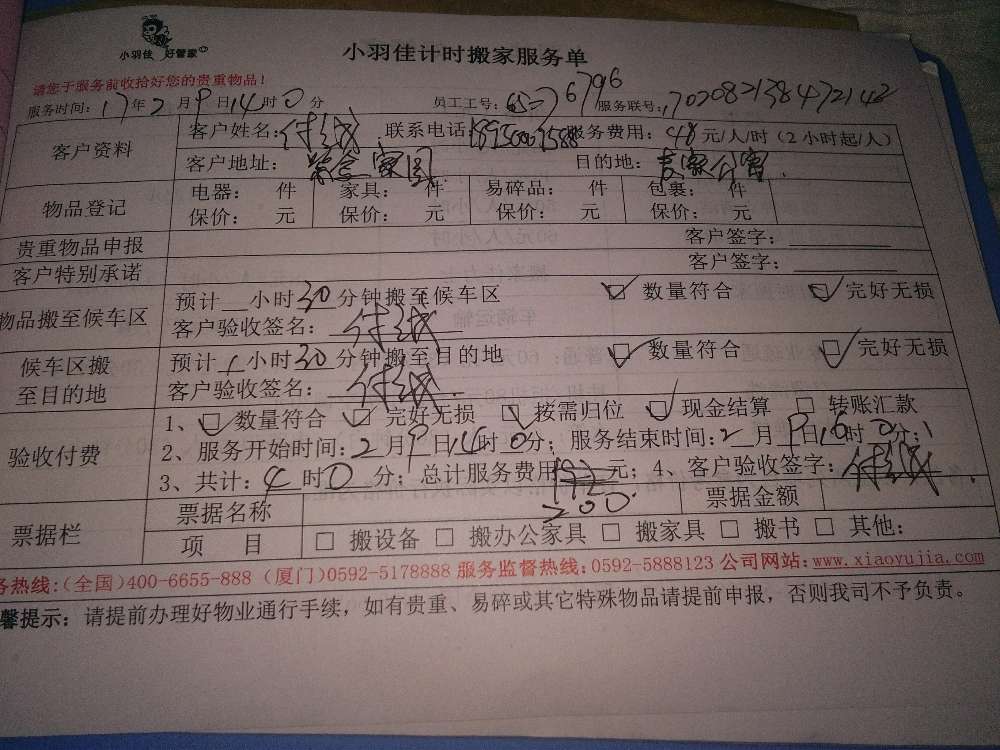 小羽佳 好管家
小羽佳计时搬家服务单
请您于服务前收拾好您的贵重物品！
服务时间：17年2月9日14时0分 员工工号： 6796 服务联号：170208213847214
客户资料 客户姓名： 联系电话： 服务费用：48元/人/时（2小时起/人）
客户地址： 目的地：
物品登记 电器： 件 家具： 件 易碎品： 件 包裹： 件
保价： 元 保价： 元 保价： 元 保价： 元
贵重物品申报 客户签字：
客户特别承诺 客户签字：
物品搬至候车区 预计 小时30分钟搬至候车区 数量符合 完好无损
客户验收签名：
候车区搬至目的地 预计1小时30分钟搬至目的地 数量符合 完好无损
客户验收签名：
验收付费 1、 数量符合 完好无损 按需归位 现金结算 转账汇款
2、服务开始时间：2月9日14时0分；服务结束时间：2月9日16时0分；
3、共计：4时0分；总计服务费用192元；4、客户验收签字：
200
票据栏 票据名称 票据金额
项 目 搬设备 搬办公家具 搬家具 搬书 其他：
务热线：(全国)400-6655-888 (厦门)0592-5178888 服务监督热线：0592-5888123 公司网站：www.xiaoyujia.com
馨提示：请提前办理好物业通行手续，如有贵重、易碎或其它特殊物品请提前申报，否则我司不予负责。